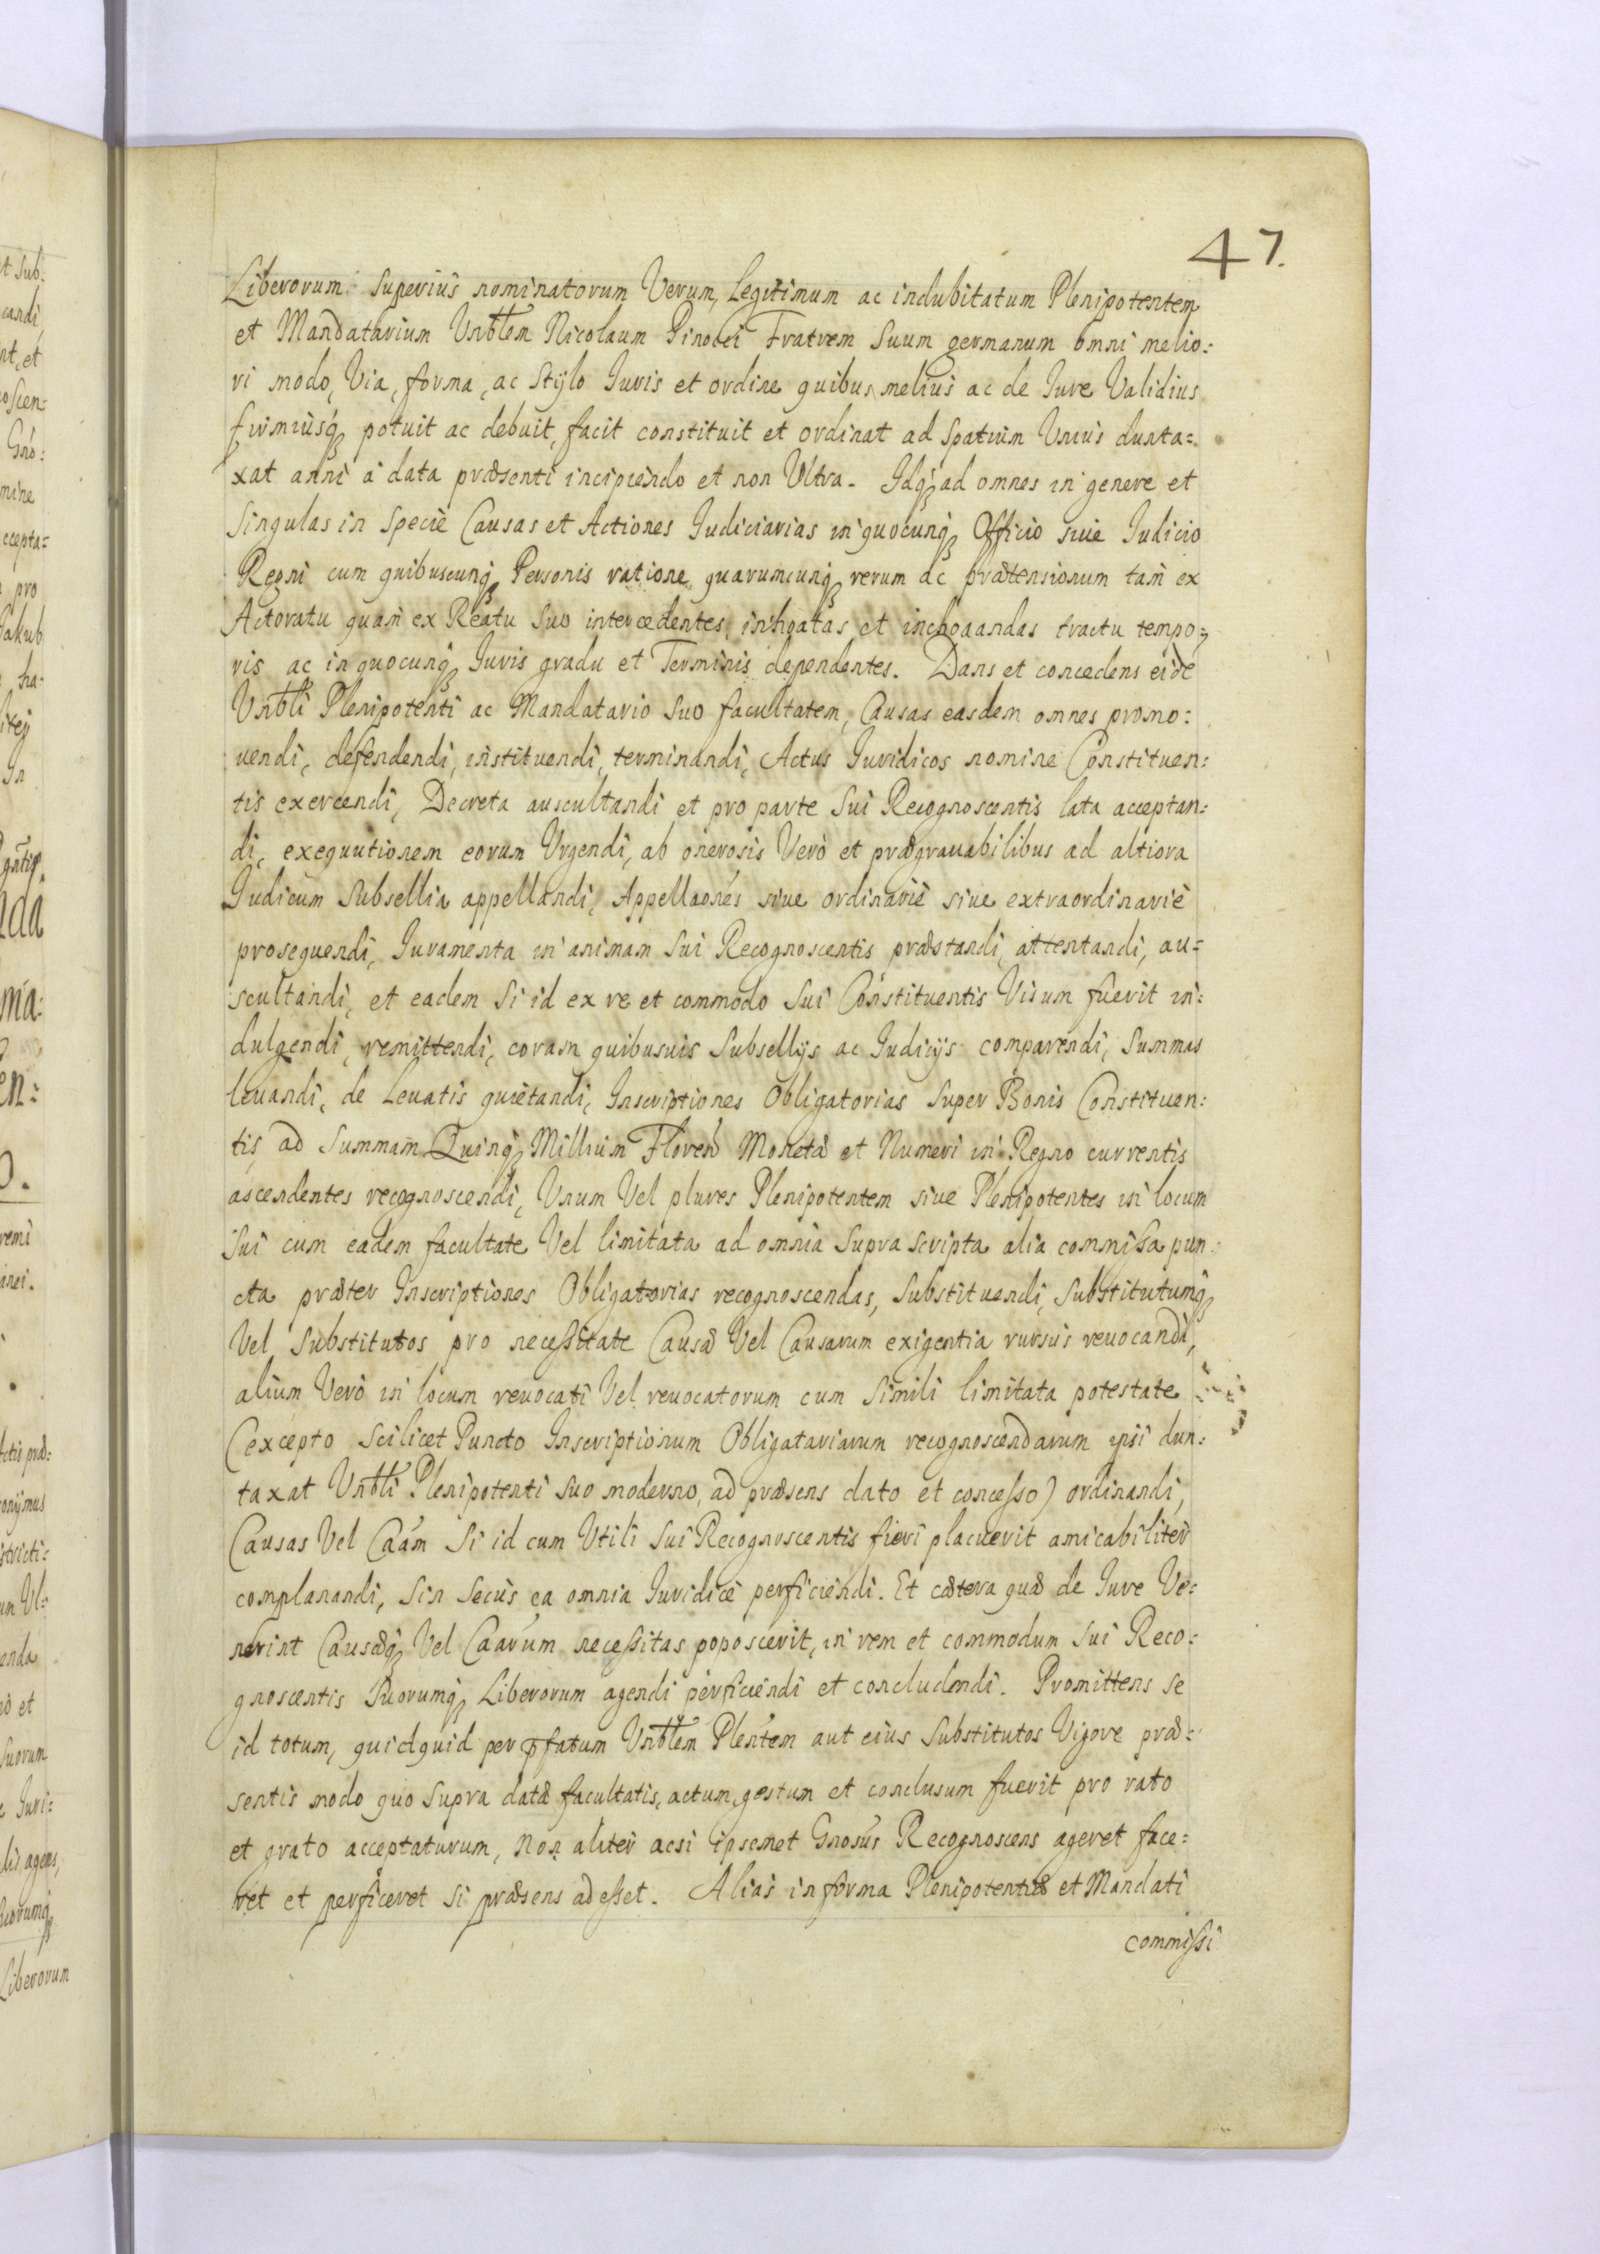 47.
Liberorum Superius nominatorum Verum, Legitimum ac indubitatum Plenipotentem
et Mandatarium Unbtlem Nicolaum Pinocci Fratrem Suum germanum omni melio:
ri modo, Via, forma, ac Stylo Iuris et ordine quibus melius ac de Iure Validius
firmiusq potuit ac debuit, facit constituit et ordinat ad Spatium Unius dunta=
xat anni a data præsenti incipiendo et non Ultra. Idq ad omnes in genere et
Singulas in Specie Causas et Actiones Iudiciarias in quocunq Officio siue Iudicio
Regni cum quibuscunq Personis ratione quarumcunq rerum ac prætensionum tam ex
Actoratu quam ex Reatu Suo intercedentes, inchoatas et inchoaandas tractu tempo=
ris ac in quocunq Iuris gradu et Terminis dependentes. Dans et concedens eide
Unbtli Plenipotenti ac Mandatario Suo facultatem, Causas easdem omnes promo:
uendi, defendendi, instituendi, terminandi, Actus Iuridicos nomine Constituen:
tis exercendi, Decreta auscultandi et pro parte Sui Recognoscentis lata acceptan:
di, exequutionem eorum Urgendi, ab onerosis Verò et prægrauabilibus ad altiora
Iudicum Subsellia appellandi, Appellaonés siue ordinariè siue extraordinariè
prosequendi, Iuramenta in animam Sui Recognoscentis præstandi, attentandi, au=
scultandi, et eadem Si id ex re et commodo Sui Constituentis Visum fuerit in:
dulgendi, remittendi, coram quibusuis Subsellijs ac Iudicijs comparendi, Summas
leuandi, de Leuatis quietandi, Inscriptiones Obligatorias Super Bonis Constituen:
tis ad Summam Quinq Millium Floren Monetæ et Numeri in Regno currentis
ascendentes recognoscendi, Unum Vel plures Plenipotentem siue Plenipotentes in locum
Sui cum eadem facultate Vel limitata ad omnia Supra scripta alia commissa pun:
cta præter Inscriptiones Obligatorias recognoscendas, Substituendi, Substitutumq
Vel Substitutos pro necessitate Causæ Vel Causarum exigentia rursus reuocandi,
alium Verò in locum reuocati Vel reuocatorum cum Simili limitata potestate
(excepto Scilicet Puncto Inscriptionum Obligatariarum recognoscendarum ipsi dun:
taxat Unbtli Plenipotenti Suo moderno, ad præsens dato et concesso) ordinandi,
Causas Vel Caám Si id cum Utili Sui Recognoscentis fieri placuerit amicabiliter
complanandi, Sin Secus ea omnia Iuridicè perficiendi. Et cætera quæ de Iure Ve:
nerint Causæq Vel Caarúm necessitas poposcerit, in rem et commodum Sui Reco:
gnoscentis Suorumq Liberorum agendi perficiendi et concludendi. Promittens se
id totum, quidquid per pfatum Unbtlem Plentem aut eius Substitutos Vigore præ:
sentis modo quo Supra datæ facultatis, actum, gestum et conclusum fuerit pro rato
et grato acceptaturum, Non aliter acsi ipsemet Gnosús Recognoscens ageret face:
ret et perficeret Si præsens adesset. Alias in forma Plenipotentiæ et Mandati
commissi